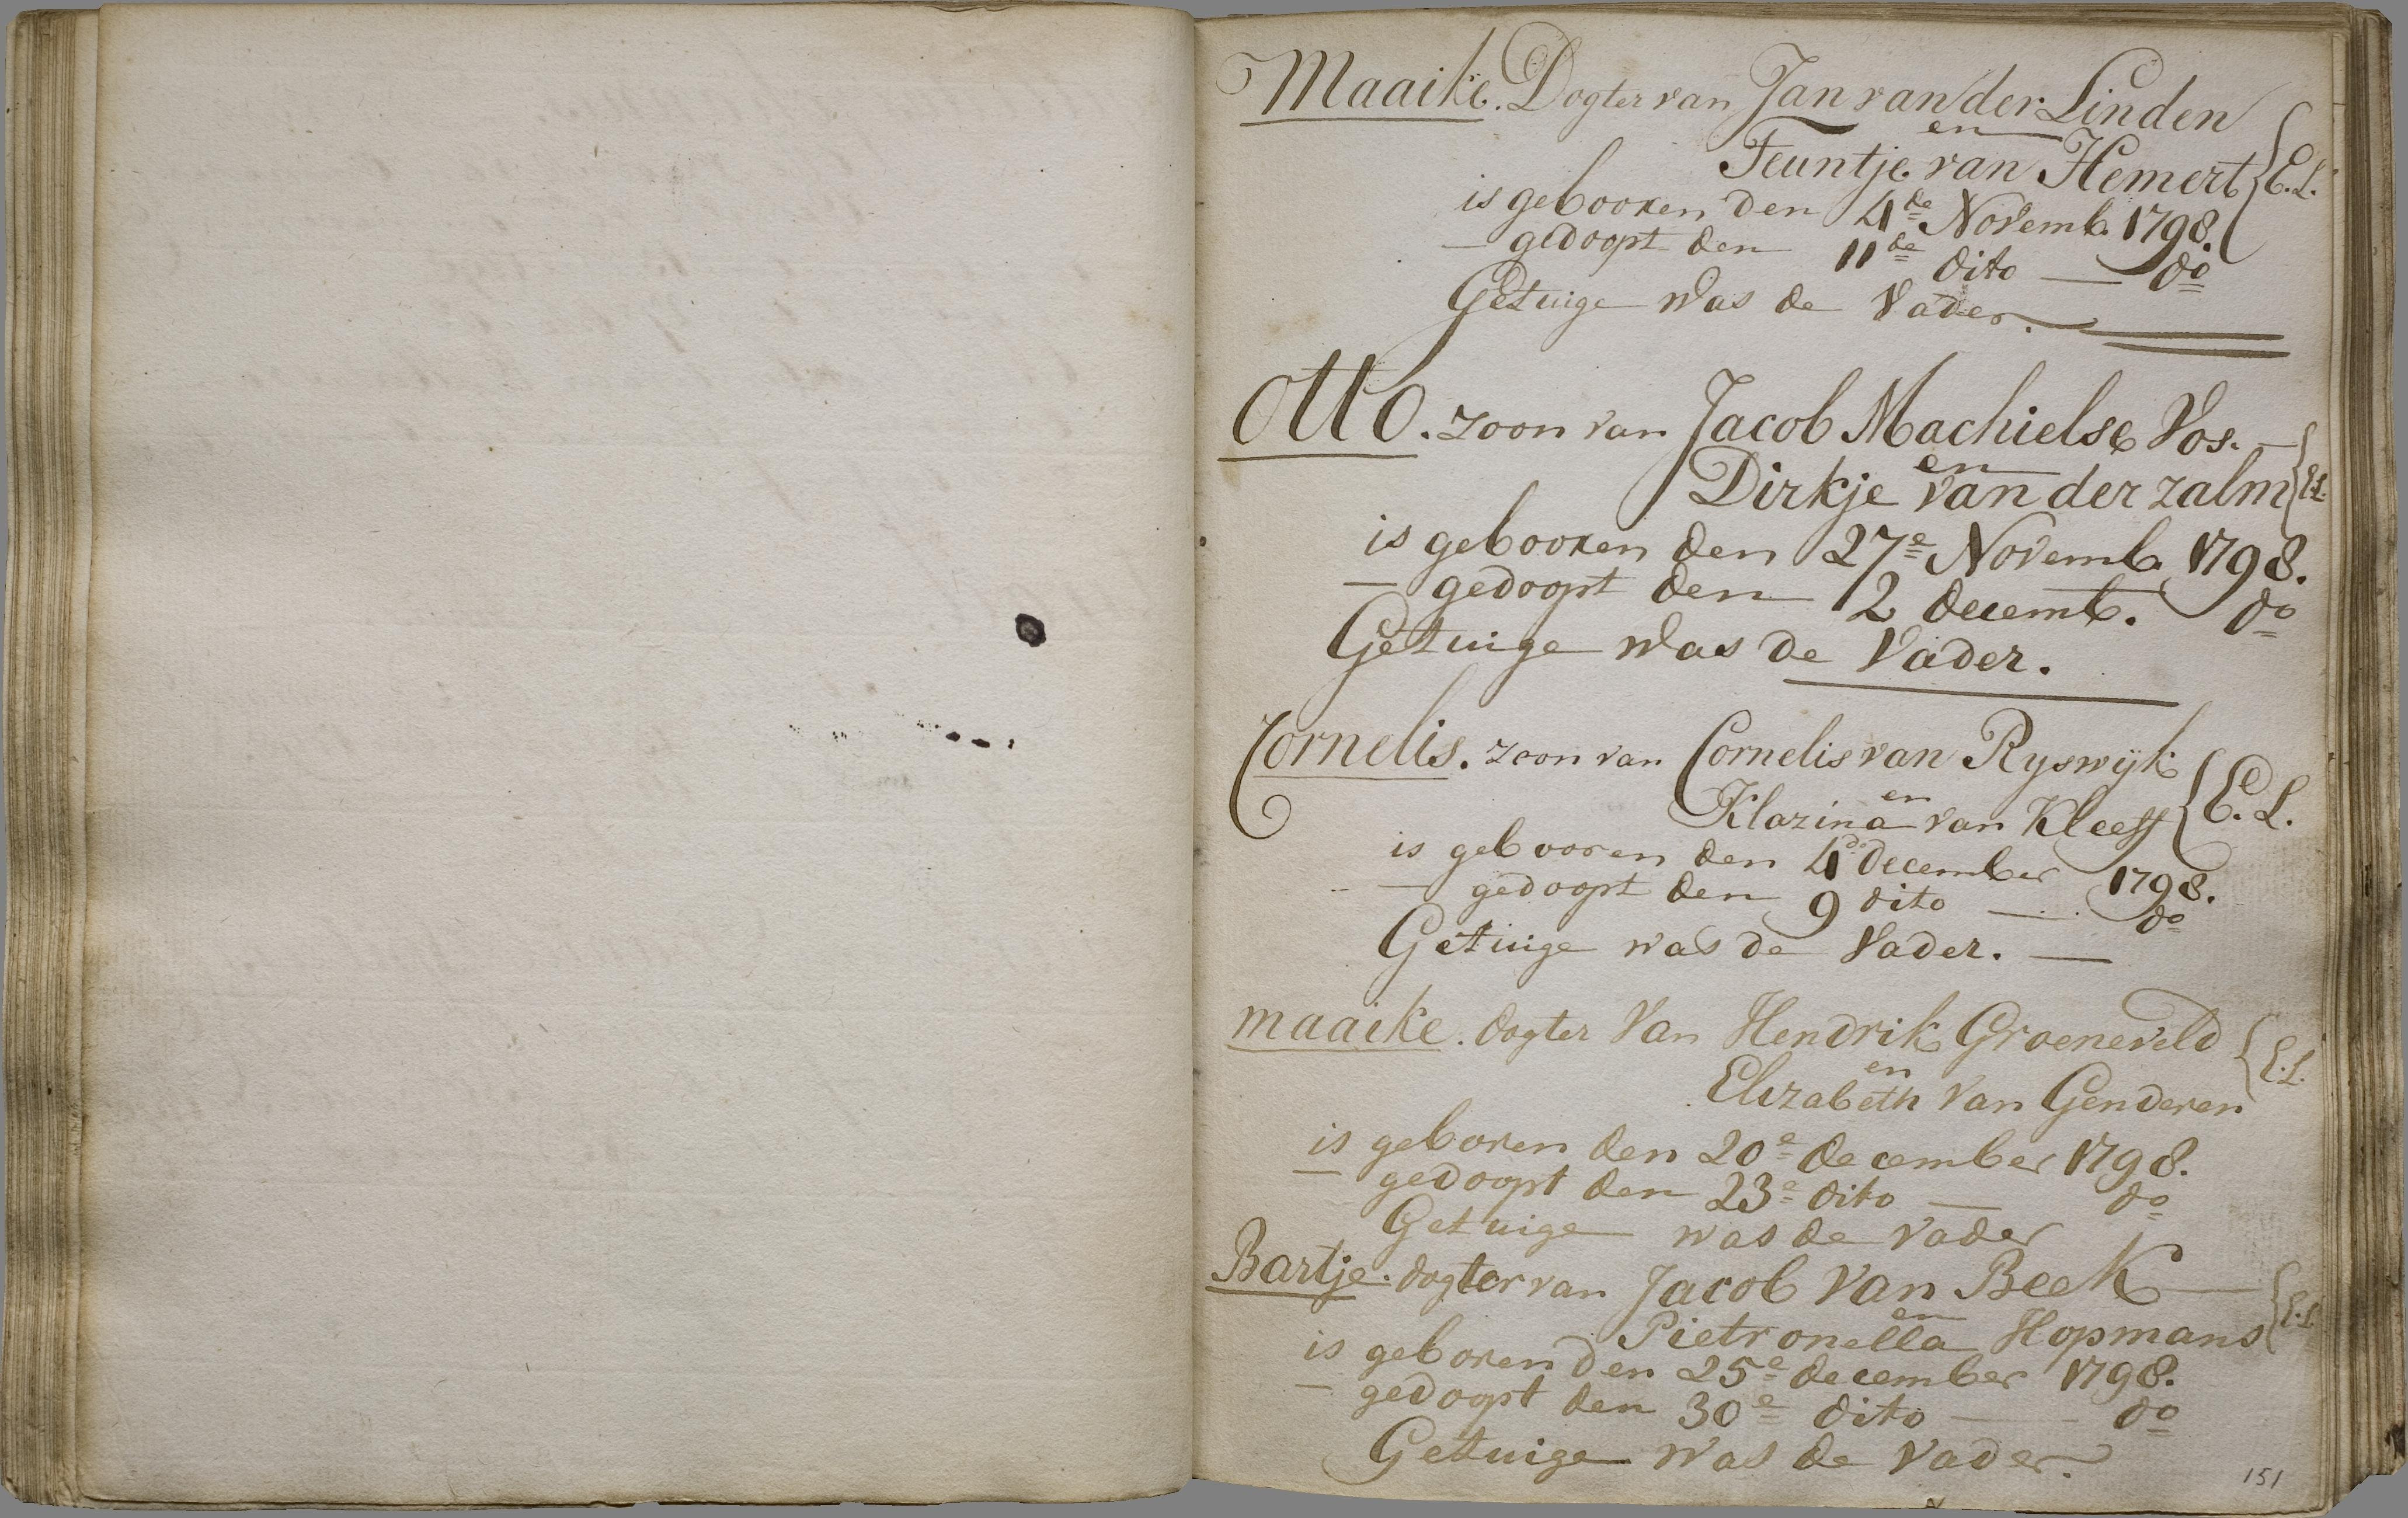 Maaike. Dogter van Jan van der Linden
en
Teuntje van Hemert } E.L.
is gebooren den 4de Novemb. 1798.
— gedoopt den 11de dito — do
Getuige was de Vader.
Otto. zoon van Jacob Machielse Vos. —
en
Dirkje van der zalm } E.L.
is gebooren den 27e Novemb. 1798.
— gedoopt den 2 decemb. do
Getuige was de Vader.
Cornelis. zoon van Cornelis van Ryswijk
en } E.L.
Klazina van Kleeff
is gebooren den 4de december 1798.
— gedoopt den 9 dito — do
Getuige was de Vader. —
maaike. dogter Van Hendrik Groeneveld
en } E.L.
Elizabeth Van Genderen
is geboren den 20e december 1798.
— gedoopt den 23e dito — do
Getuige was de vader
Bartje. dogter van Jacob Van Beek —
en } E.L.
Pietronella Hopmans
is geboren den 25e december 1798.
— gedoopt den 30e dito — do
Getuige was de Vader.
151